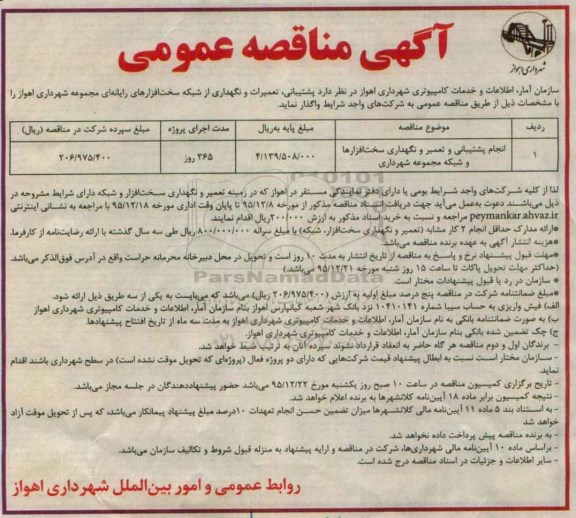 آگهی مناقصه عمومی
شهرداری اهواز
سازمان آمار، اطلاعات و خدمات کامپیوتری شهرداری اهواز در نظر دارد پشتیبانی، تعمیرات و نگهداری از شبکه سخت‌افزارهای رایانه‌ای مجموعه شهرداری اهواز را
با مشخصات ذیل از طریق مناقصه عمومی به شرکت‌های واجد شرایط واگذار نماید.
ردیف موضوع مناقصه مبلغ پایه به‌ریال مدت اجرای پروژه مبلغ سپرده شرکت در مناقصه (ریال)
۱ انجام پشتیبانی و تعمیر و نگهداری سخت‌افزارها و شبکه مجموعه شهرداری ۴/۱۳۹/۵۰۸/۰۰۰ ۳۶۵ روز ۲۰۶/۹۷۵/۴۰۰
لذا از کلیه شرکت‌های واجد شرایط بومی یا دارای دفتر نمایندگی مستقر در اهواز که در زمینه تعمیر و نگهداری سخت‌افزار و شبکه دارای شرایط مشروحه در
ذیل می‌باشند دعوت به‌عمل می‌آید جهت دریافت اسناد مناقصه مذکور از مورخه ۹۵/۱۲/۸ تا پایان وقت اداری مورخه ۹۵/۱۲/۱۸ با مراجعه به نشانی اینترنتی
peymankar.ahvaz.ir مراجعه و نسبت به خرید اسناد مذکور به ارزش ۲۰۰/۰۰۰ریال اقدام نمایند.
*ارائه مدارک حداقل انجام ۲ کار مشابه (تعمیر و نگهداری سخت‌افزار، شبکه) با مبلغ سرانه ۸۰۰/۰۰۰/۰۰۰ ریال طی سه سال گذشته با ارائه رضایت‌نامه از کارفرما.
*هزینه انتشار آگهی به عهده برنده مناقصه می‌باشد.
*مهلت قبول پیشنهاد نرخ و پاسخ به مناقصه از تاریخ انتشار به مدت ۱۰ روز است و تحویل در محل دبیرخانه محرمانه حراست واقع در آدرس فوق‌الذکر می‌باشد.
(حداکثر مهلت تحویل پاکات تا ساعت ۱۵ روز شنبه مورخه ۹۵/۱۲/۲۱ می‌باشد.)
* سازمان در رد یا قبول پیشنهادات مختار است.
*مبلغ ضمانتنامه شرکت در مناقصه پنج درصد مبلغ اولیه به ارزش (۲۰۶/۹۷۵/۴۰۰ ریال) می‌باشد که می‌بایست به یکی از سه طریق ذیل ارائه شود.
الف) فیش واریزی به حساب سیبا شماره ۱۰۰۴۱۰۱۴۱ نزد بانک شهر شعبه کیانپارس اهواز بنام سازمان آمار، اطلاعات و خدمات کامپیوتری شهرداری اهواز
ب) به صورت ضمانتنامه بانکی به نام سازمان آمار، اطلاعات و خدمات کامپیوتری شهرداری اهواز به مدت سه ماه از تاریخ افتتاح پیشنهادها.
ج) چک تضمین شده بانکی بنام سازمان آمار، اطلاعات و خدمات کامپیوتری شهرداری اهواز.
- برندگان اول و دوم مناقصه هر گاه حاضر به انعقاد قرارداد نشوند سپرده آنان به ترتیب ضبط خواهد شد.
- سازمان مختار است نسبت به ابطال پیشنهاد قیمت شرکت‌هایی که دارای دو پروژه فعال (پروژه‌ای که تحویل موقت نشده است) در سطح شهرداری باشند اقدام
نماید.
- تاریخ برگزاری کمیسیون مناقصه در ساعت ۱۰ صبح روز یکشنبه مورخ ۹۵/۱۲/۲۲ می‌باشد حضور پیشنهاددهندگان در جلسه مجاز می‌باشد.
- نتیجه کمیسیون برابر ماده ۱۸ آیین‌نامه کلانشهرها به برنده اعلام خواهد شد.
- به استناد بند ۵ ماده ۱۱ آیین‌نامه مالی کلانشهرها میزان تضمین حسن انجام تعهدات ۱۰درصد مبلغ پیشنهاد پیمانکار می‌باشد، که پس از تحویل موقت آزاد
خواهد شد
- به برنده مناقصه پیش پرداخت داده نخواهد شد.
- براساس ماده ۱۰ آیین‌نامه مالی شهرداری‌ها، شرکت در مناقصه و ارایه پیشنهاد به منزله قبول شروط و تکالیف سازمان می‌باشد.
- سایر اطلاعات و جزئیات در اسناد مناقصه درج شده است.
روابط عمومی و امور بین‌الملل شهرداری اهواز
ParsNamadData